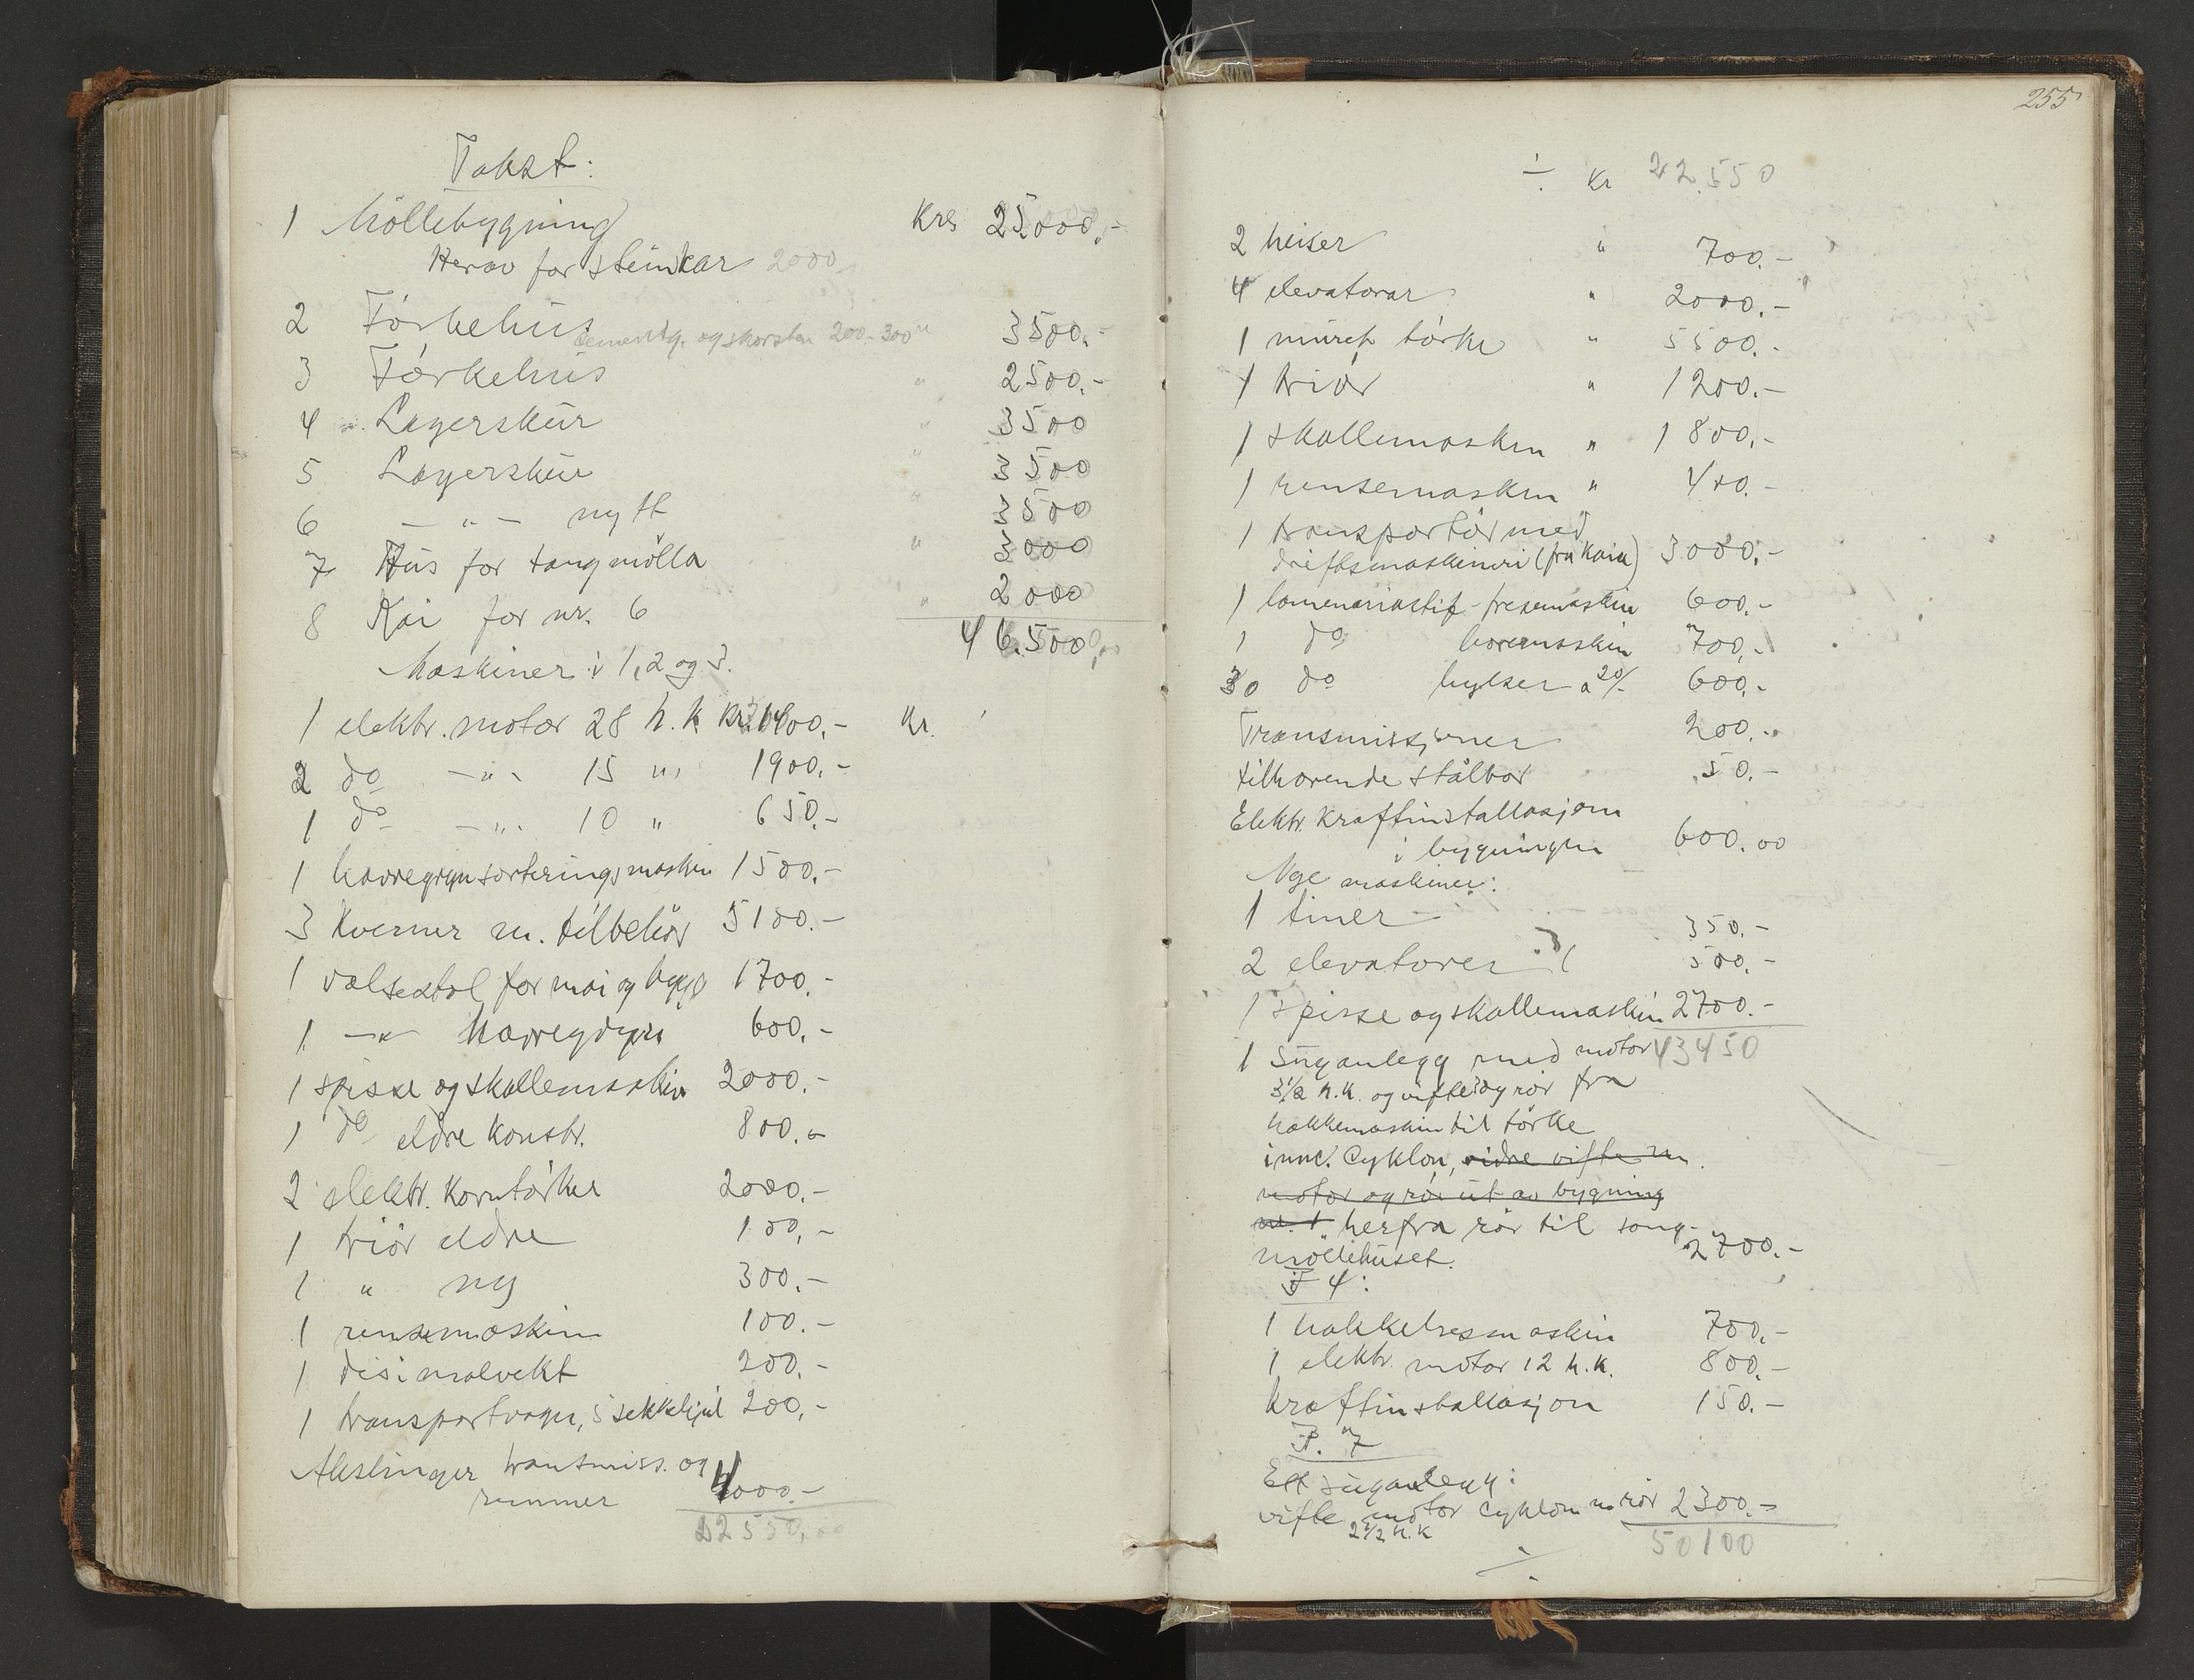 Takst:
1 Möllebygning Kr 25000,-
Herav for steinkar 2000
2 Törkehus 3500.-
sementg. og skorsten 200.- 300
3 Törkehus " 2500.-
4 Lagerskur " 3500
5 Lagerskur " 3500
6 - " - nytt " 3500
7 Hus for tangmölla " 3000
8 Kai for nr. 6 " 2000
46.500,00
Maskiner i 1, 2 og 3.
1 elektr. motor 28 h.k Kr. 1400,- Kr.
2 do - " - 15 " 1900.-
1 do - " - 10 " 650.-
1 havregrynsorteringsmaskin 1500.-
3 Kverner m. tilbehör 5100.-
1 valsestol for mai og bygg 1700.-
1 - " - havregryn 600.-
1 spisse og skallemaskin 2000.-
1 do eldre konstr. 800.-
2 elektr. korntörker 2000.-
1 triör eldre 100,-
1 " ny 300.-
1 rensemaskin 100.-
1 desimalvekt 200.-
1 transportvogn, 5 sekkehjul 200,-
Akslinger transmiss. og
remmer 4000.-
22550,00
255
÷ Kr 22.550
2 heiser " 700.-
4 elevatorar " 2000.-
1 muret törke " 5500.-
1 triör " 1200.-
1 skallemaskin " 1800.-
1 rensemaskin " 400.-
1 transportör med
driftsmaskineri (fra kaia) 3000.-
1 lamenariastift-fresemaskin 600.-
1 do boremaskin 700.-
30 do hylser a 20/- 600.-
Transmissjoner 200.-
tilhörende stålbor 50.-
Elektr. Kraftinstallasjon
i bygningen 600.00
Nye maskiner:
1 tiner 350.-
2 elevatorer 500.-
1 spisse og skallemaskin 2700.-
43450
1 Suganlegg med motor
3½ h.k. og vifte og rör fra
hakkemaskin til törke
incl. Cyklon, vidre vifte m
motor og rör ut av bygning
nr. 1 herfra rör til tang-
möllehuset. 2700.-
I 4:
1 hakkelsesmaskin 700.-
1 elektr. motor 12 h.k. 800.-
Kraftinstallasjon 150.-
I. 7
Ett suganlegg:
vifte motor cyklon m rör 2300.-
2½ h.k
50100
÷